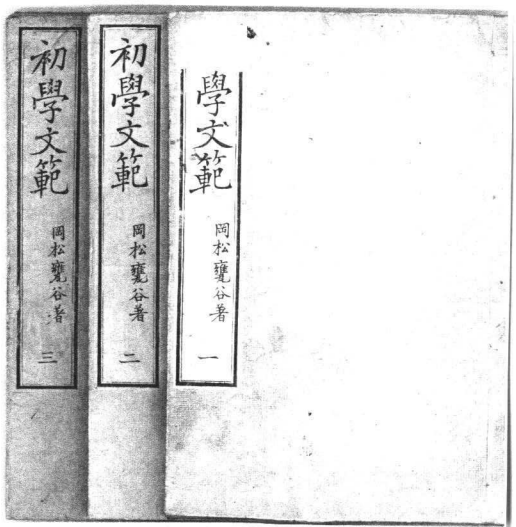 學文範
岡松甕谷著
一
初學文範
岡松甕谷著
二
初學文範
岡松甕谷著
三